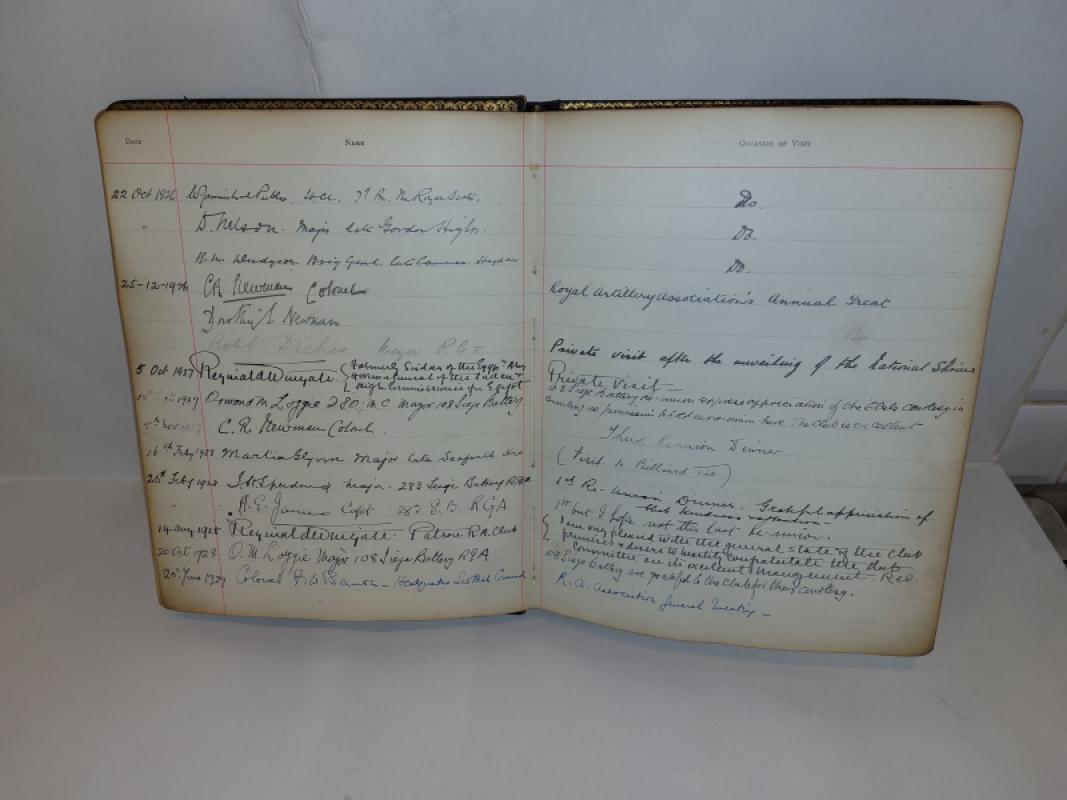 DATE NAME OCCASION OF VISIT
22 Oct 1926 Lt Col. The Royal Scots. Do.
" D. Nelson. Major late Gordon Highrs. Do.
Brig Genl. late Cameron Do.
25-12-1926 CR Newman Colonel Royal Artillery Association's Annual Treat
Dorothy Newman
Robt Major R.G.A
5 Oct 1927 Reginald Wingate. Formerly Sirdar of the Egypn Army Private visit after the unveiling of the National Shrine
Governor General of the Sudan
High Commissioner for Egypt Private Visit
1927 Ormond M. Loggie DSO, M.C. Major 108 Siege Battery 108 Siege Battery re-union express appreciation of the Clubs courtesy in
granting us permission to hold our re-union here. The Club is excellent
5th Nov 1927 C. R. Newman Colonel. Third Reunion Dinner
16th Feby 1928 Martin Glynn Major late Seaforth (Visit to Billiard Tie)
25th Feby 1928 Major. 283 Siege Battery RGA 1st Re-union Dinner. Grateful appreciation of
their kindness & attention
A. E. James Capt 283 S.B. RGA 1st but I hope not the last Re-union.
14 Aug 1928 Reginald Wingate. Patron R.A. Club I am very pleased with the general state of the Club
premises & desire to heartily congratulate the
Committee on its excellent management. R.W.
20 Oct 1928 O. M. Loggie Major 108 Siege Battery RGA 108 Siege Battery are grateful to the Club for their courtesy.
20th June 1929 Colonel Headquarters Scottish Command R. A. Association General Meeting